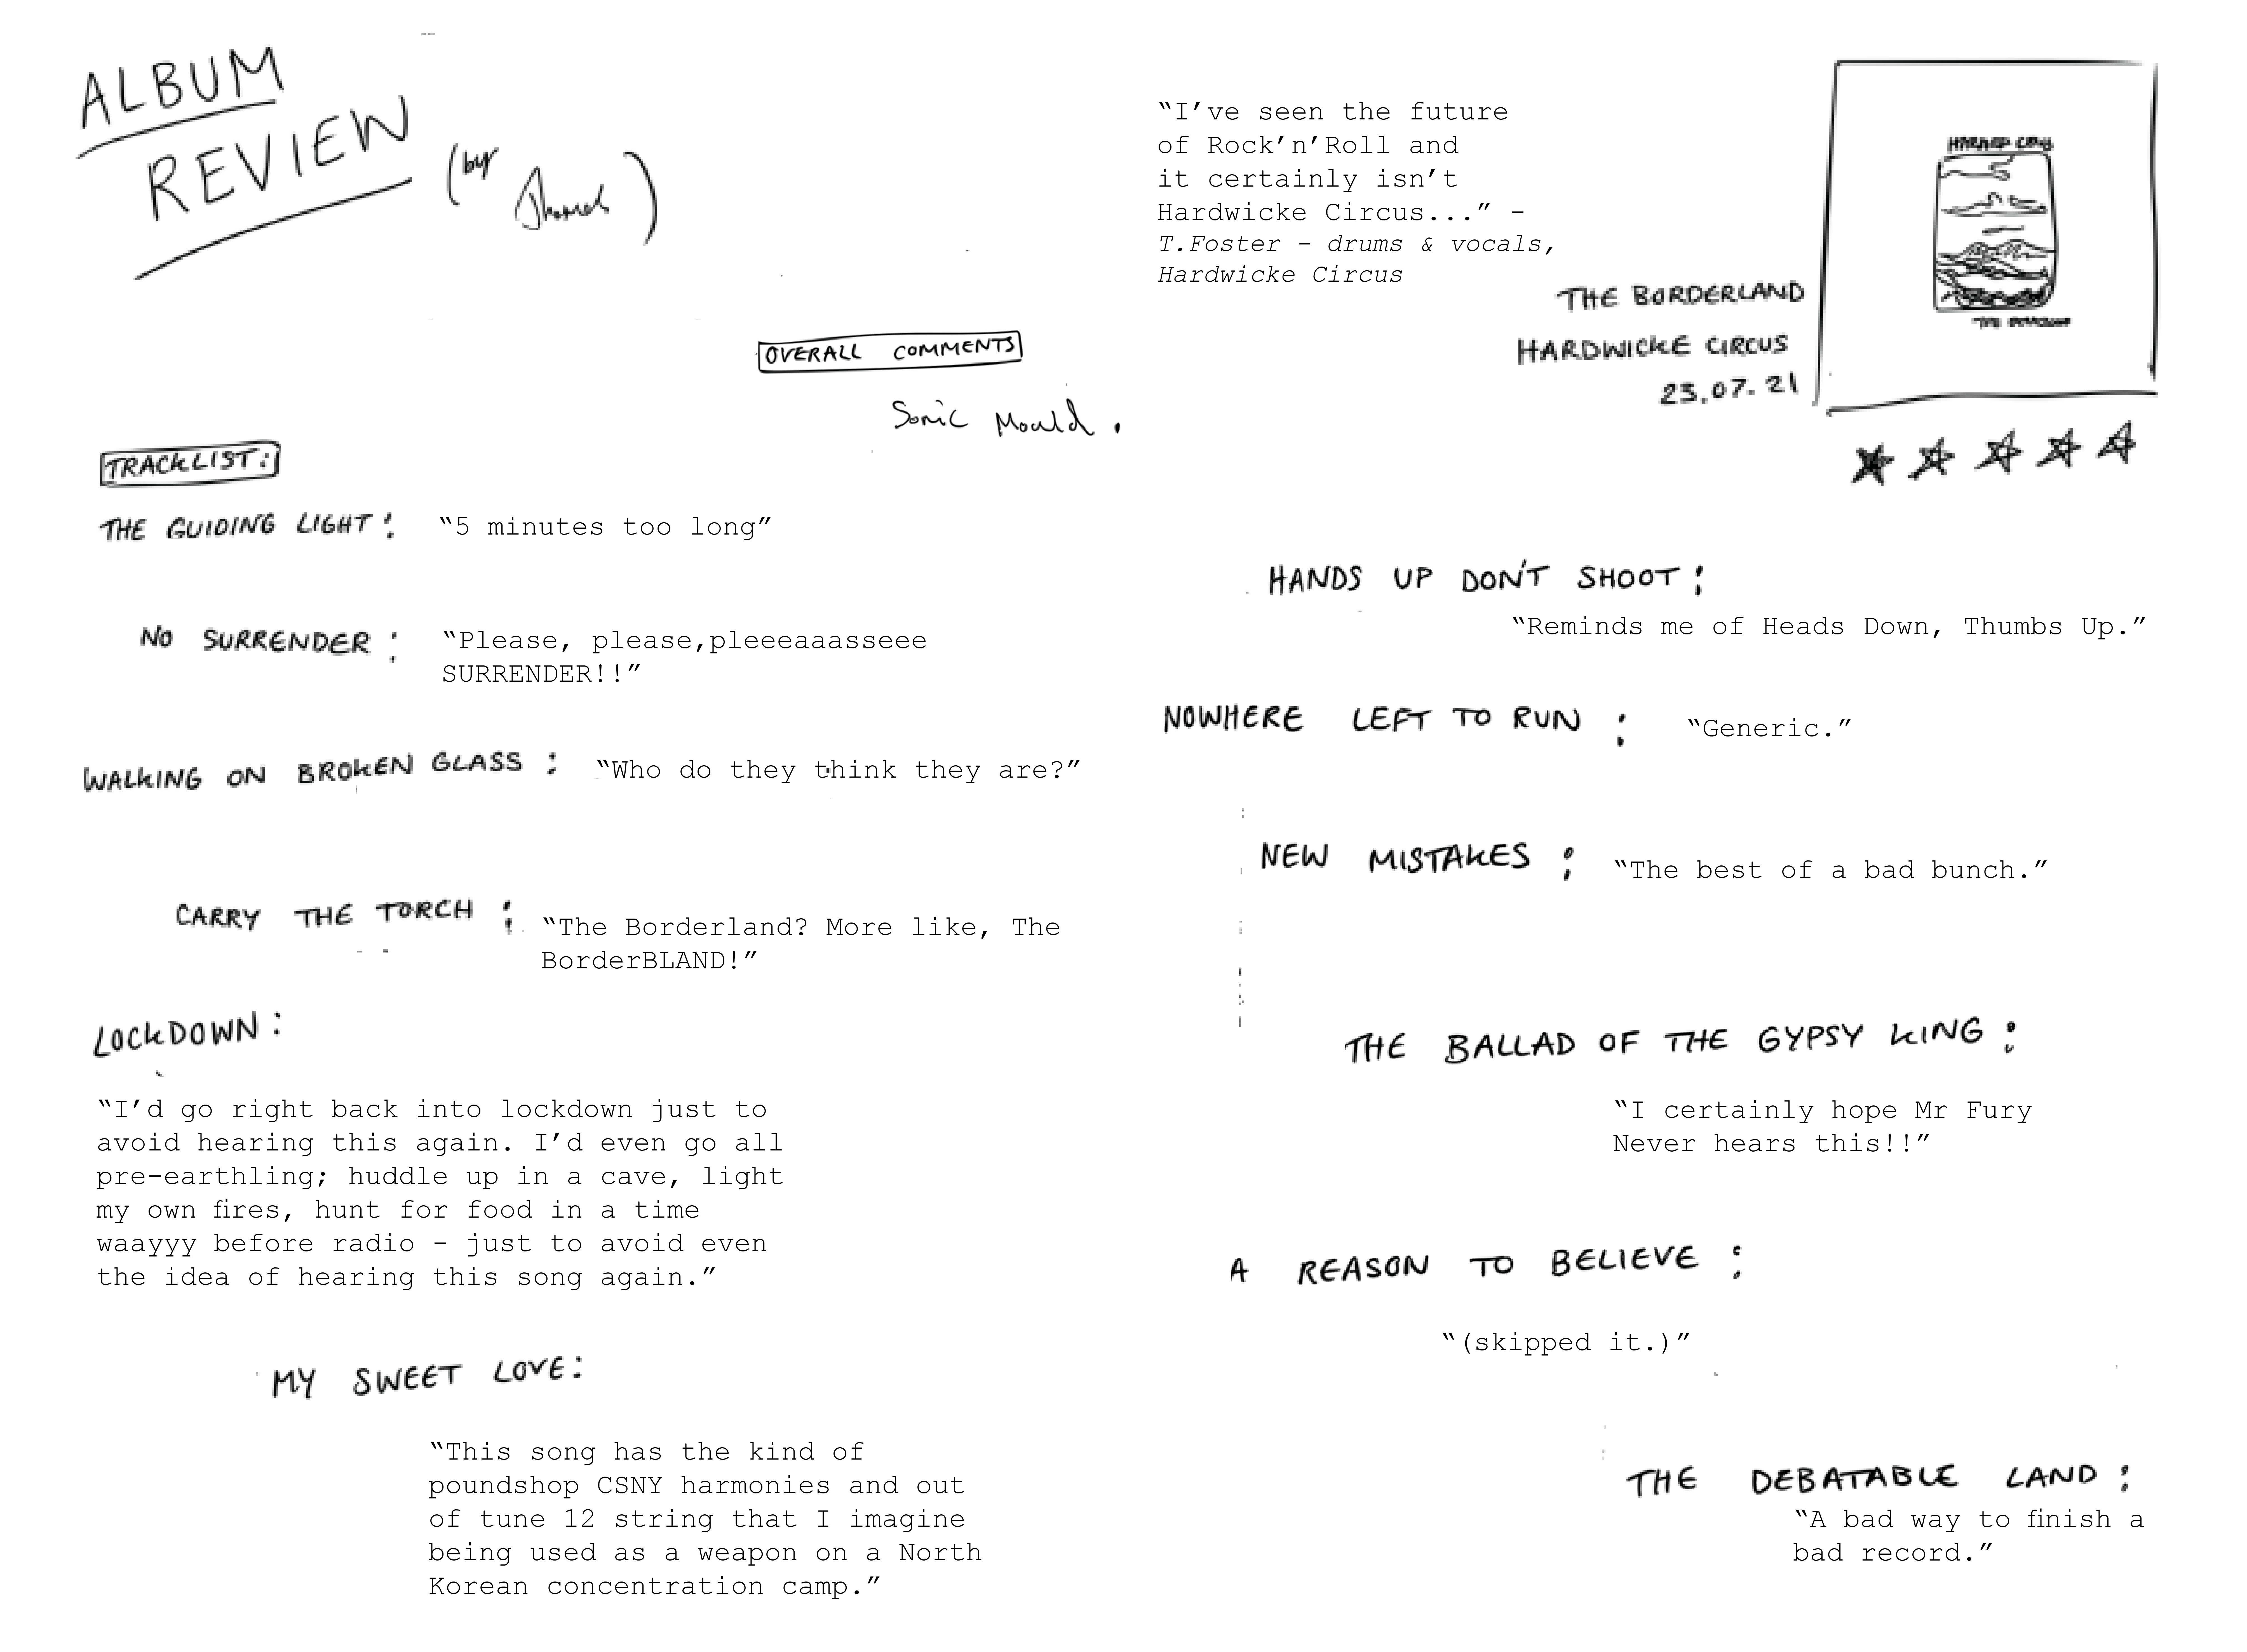 ALBUM
REVIEW
(by
)
"I've seen the future
of Rock'n'Roll and
it certainly isn't
Hardwicke Circus..." -
T.Foster - drums & vocals,
Hardwicke Circus
THE BORDERLAND
HARDWICKE CIRCUS
23.07.21
OVERALL COMMENTS
Sonic Mould.
TRACKLIST:
THE GUIDING LIGHT: "5 minutes too long"
NO SURRENDER: "Please, please,pleeeaaasseee
SURRENDER!!"
WALKING ON BROKEN GLASS: "Who do they think they are?"
CARRY THE TORCH: "The Borderland? More like, The
BorderBLAND!"
LOCKDOWN:
"I'd go right back into lockdown just to
avoid hearing this again. I'd even go all
pre-earthling; huddle up in a cave, light
my own fires, hunt for food in a time
waayyy before radio - just to avoid even
the idea of hearing this song again."
MY SWEET LOVE:
"This song has the kind of
poundshop CSNY harmonies and out
of tune 12 string that I imagine
being used as a weapon on a North
Korean concentration camp."
HANDS UP DON'T SHOOT:
"Reminds me of Heads Down, Thumbs Up."
NOWHERE LEFT TO RUN: "Generic."
NEW MISTAKES: "The best of a bad bunch."
THE BALLAD OF THE GYPSY KING:
"I certainly hope Mr Fury
Never hears this!!"
A REASON TO BELIEVE:
"(skipped it.)"
THE DEBATABLE LAND:
"A bad way to finish a
bad record."